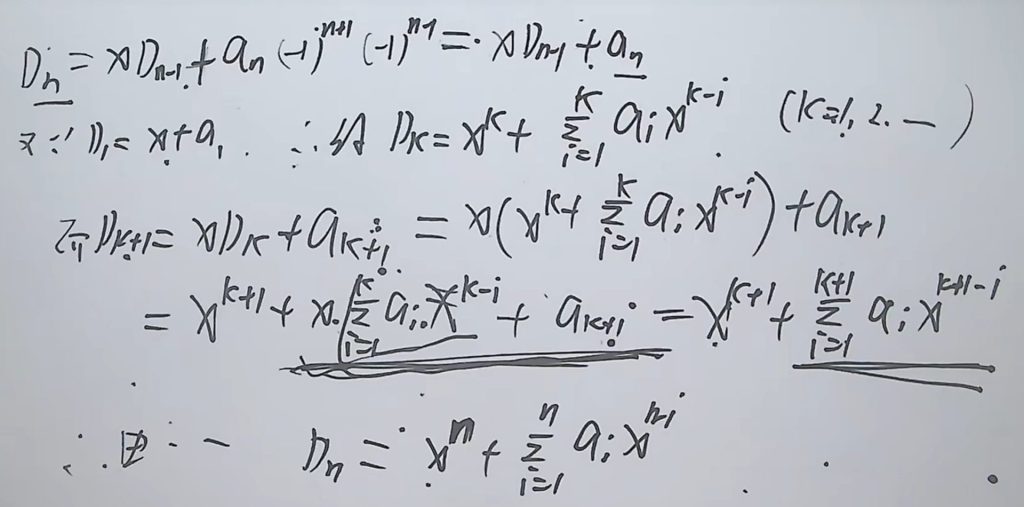 Dₙ = xDₙ₋₁ + aₙ (-1)ⁿ⁺¹ (-1)ⁿ⁻¹ = xDₙ₋₁ + aₙ
又∵ D₁ = x + a₁ . ∴ 设 Dₖ = xᵏ + ∑ᵢ₌₁ᵏ aᵢxᵏ⁻ⁱ . (k=1, 2. — )
而 Dₖ₊₁ = xDₖ + aₖ₊₁ = x(xᵏ + ∑ᵢ₌₁ᵏ aᵢxᵏ⁻ⁱ) + aₖ₊₁
= xᵏ⁺¹ + x·∑ᵢ₌₁ᵏ aᵢxᵏ⁻ⁱ + aₖ₊₁ = xᵏ⁺¹ + ∑ᵢ₌₁ᵏ⁺¹ aᵢxᵏ⁺¹⁻ⁱ
∴ Dₙ = xⁿ + ∑ᵢ₌₁ⁿ aᵢxⁿ⁻ⁱ